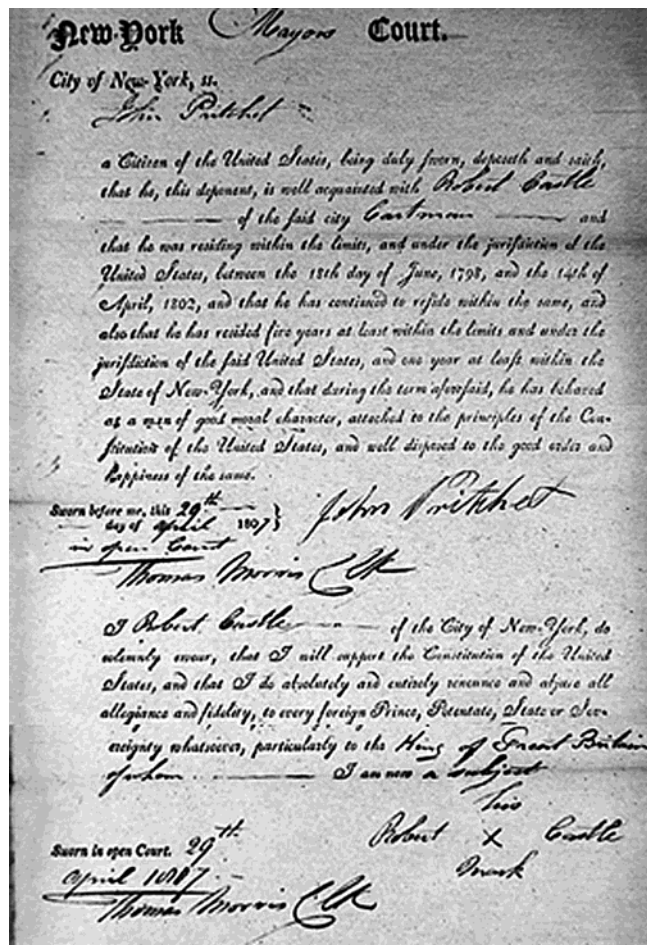 New-York Mayors Court.
City of New-York, ss.
John Pritchet
a Citizen of the United States, being duly sworn, deposeth and saith,
that he, this deponent, is well acquainted with Robert Castle
of the said city Cartman and
that he was residing within the limits, and under the jurisdiction of the
United States, between the 18th day of June, 1798, and the 14th of
April, 1802, and that he has continued to reside within the same, and
also that he has resided five years at least within the limits and under the
jurisdiction of the said United States, and one year at least within the
State of New-York, and that during the term aforesaid, he has behaved
as a man of good moral character, attached to the principles of the Con-
stitution of the United States, and well disposed to the good order and
happiness of the same.
Sworn before me, this 29th
day of April 1807
in open Court
John Pritchet
Thomas Morris Clk
I Robert Castle of the City of New-York, do
solemnly swear, that I will support the Constitution of the United
States, and that I do absolutely and entirely renounce and abjure all
allegiance and fidelity, to every foreign Prince, Potentate, State or Sov-
ereignty whatsoever, particularly to the King of Great Britain
of whom I am now a subject
his
Robert X Castle
mark
Sworn in open Court. 29th
April 1807
Thomas Morris Clk